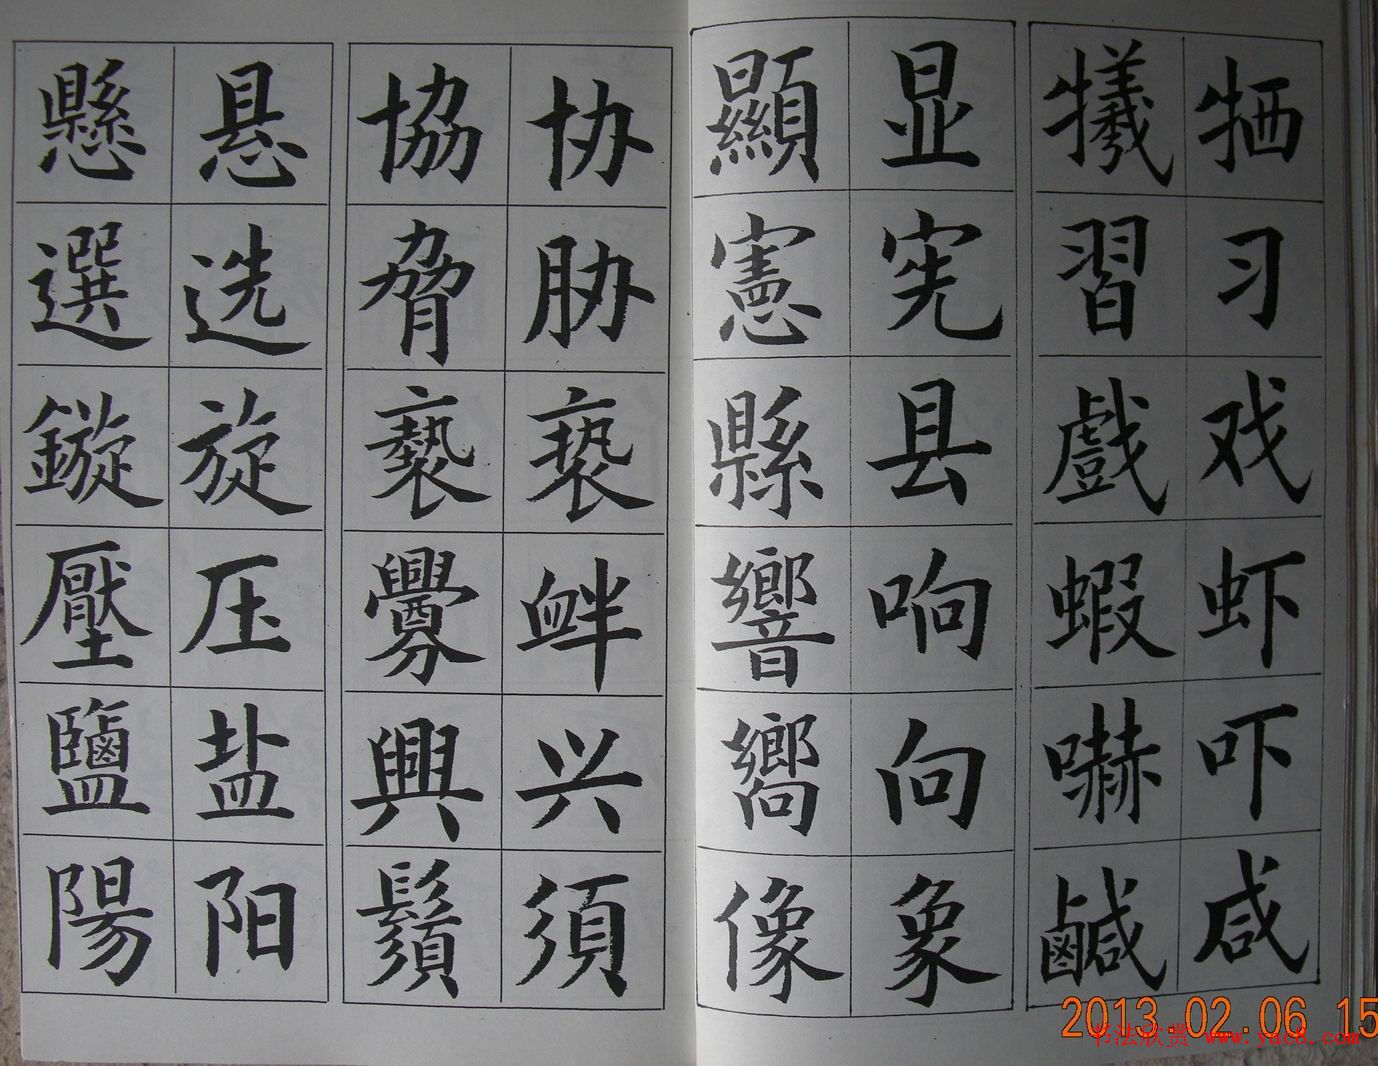 牺习戏虾吓咸
犧習戲蝦嚇鹹
显宪县响向象
顯憲縣響嚮像
协胁亵衅兴須
協脅褻釁興鬚
悬选旋压盐阳
懸選鏇壓鹽陽
2013.02.06 15
书法欣赏 www.yac8.com